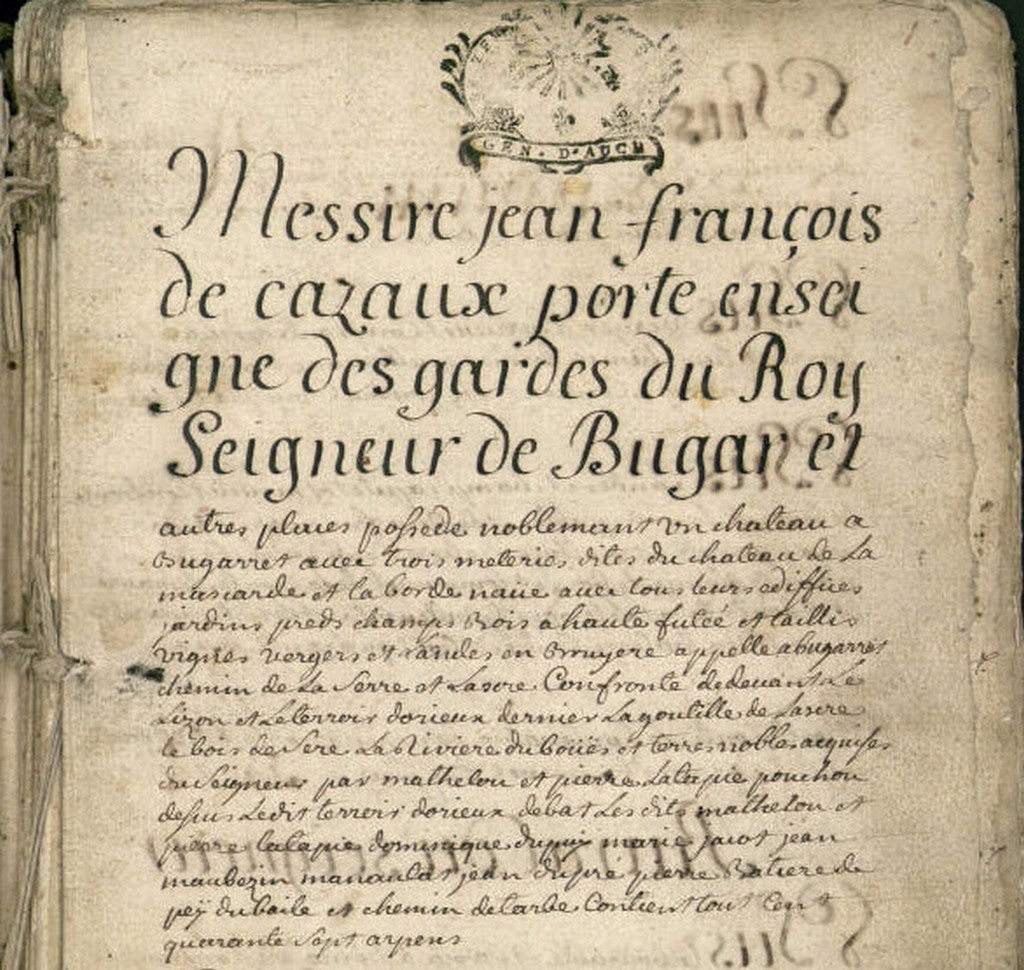 GEN. D'AUCH
Messire jean françois
de cazaux porte ensei
gne des gardes du Roy
Seigneur de Bugar et
autres places possede noblemant vn chateau a
Bugarret auec trois meteries dites du chateau de La
mascarde et la borde naue auec tous leurs ediffices
jardins preds champs Bois a haute futeé et taillis
vignes vergers et landes en Bruyere appelle a bugarret
chemin de La Serre et Lasere Confronte de deuant Le
Lizon et Le terroir dorieux dernier La goutille de Lasere
le bois de Sere La Riviere du boües et terres nobles acquises
du Seigneur par mathelou et pierre Latapie pouchou
dessus Ledit terroir dorieux debat Les dits mathelou et
pierre latapie dominique dupuy marie jacot jean
maubezin manaula jean dupré pierre Batiere de
peÿ du baile et chemin de tarbe Contient tout Cent
quarante Sept arpens